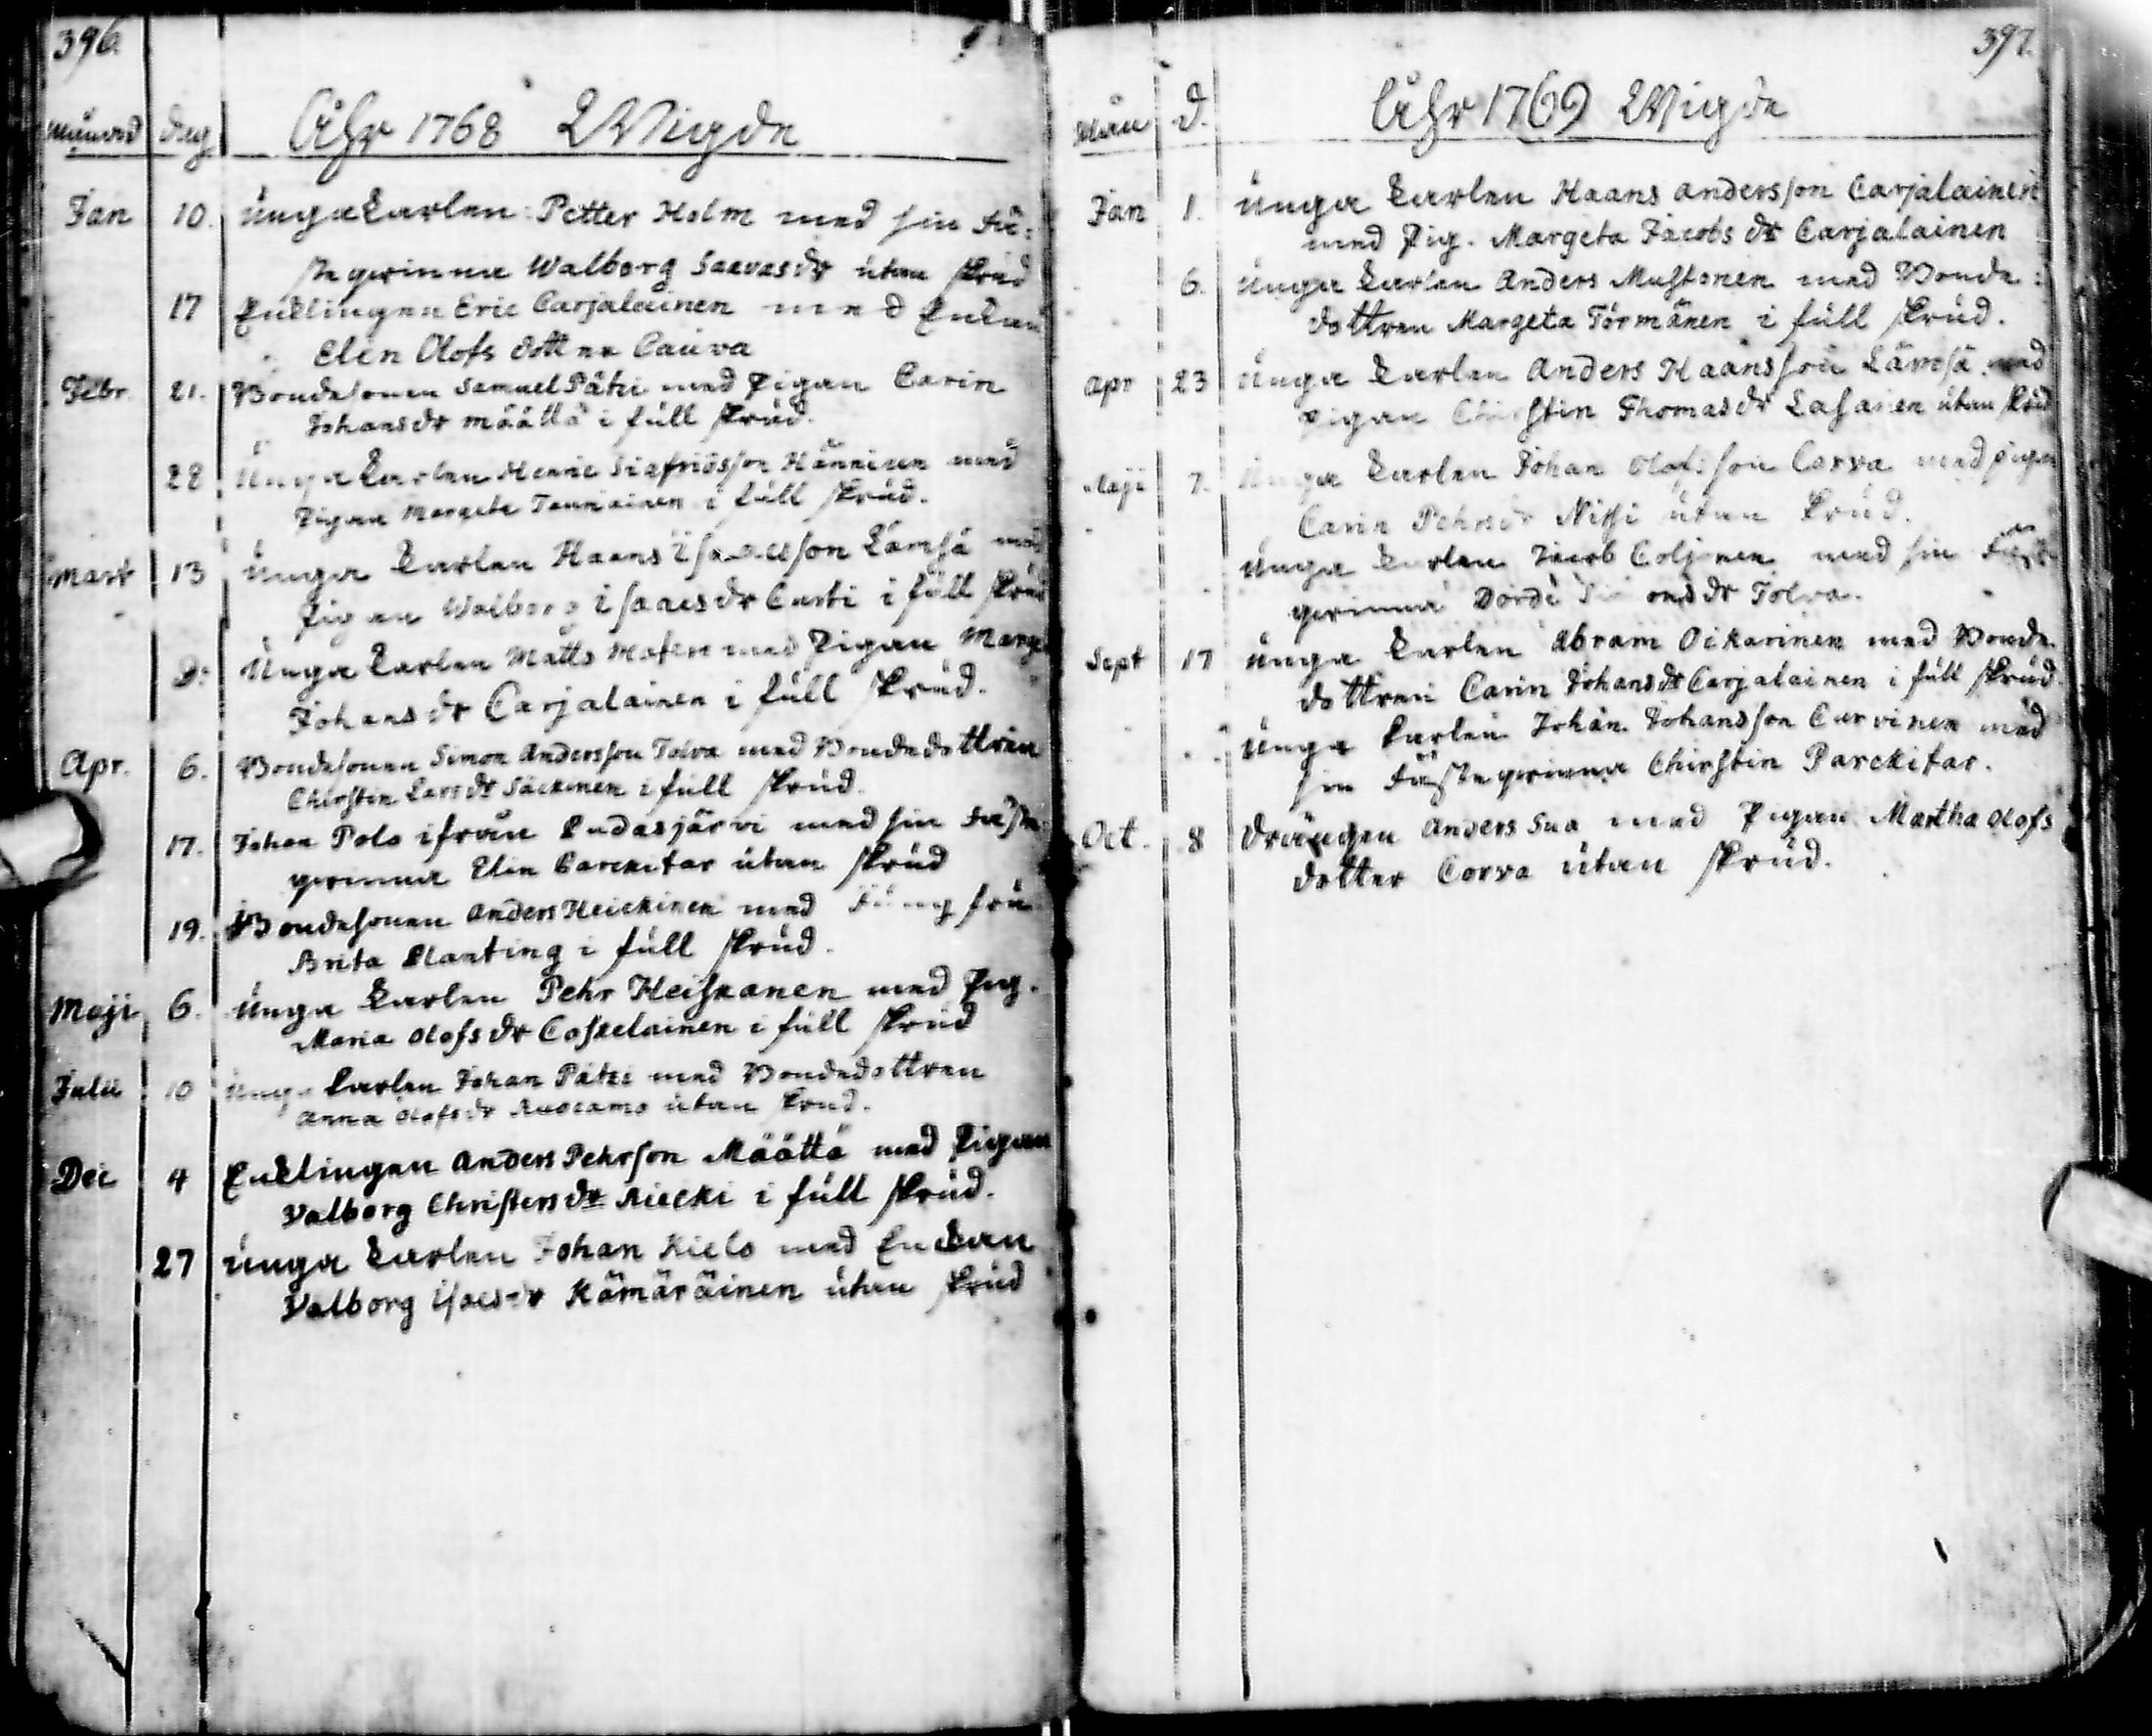 396.
Månad dag Åhr 1768 Wigde
Jan 10. Unga Karlen Petter Holm med sin Fä=
stegvinna Walborg Saevasdr utan skrud
17 Enklingen Eric Carjalainen med Enkan
Elin Olofs dotter Cauva
Febr. 21. Bondesonen Samuel Pätzi med Pigan Carin
Johansdr Määttä i full skrud.
22 Unga Karlen Henric Sigfridsson Hänninen med
Pigan Margeta Tauriainen i full skrud.
Mart 13 Unga Karlen Haans Isaacsson Lämsä med
Pigan Walborg Isaacsdr Curti i full skrud
D: Unga Karlen Matts Mosen med Pigan Marg
Johansdr Carjalainen i full skrud.
Apr. 6. Bondesonen Simon Andersson Tolva med Bondedottren
Chirstin Larsdr Säckinen i full skrud.
17. Johan Polo ifrån Pudasjärvi med sin Fäste
qvinna Elin Parckitar utan skrud
19. Bondesonen Anders Heickinen med Jungfru
Brita Planting i full skrud.
Maji 6. Unga Karlen Pehr Heiskanen med Pig.
Maria Olofsdr Coskelainen i full skrud
Julii 10 Unga Karlen Johan Pätzi med Bondedottren
Anna Olofsdr Auocamo utan skrud.
Dec 4 Enklingen Anders Pehrson Määttä med Pigan
Valborg Christersdr Riecki i full skrud.
27 Unga Karlen Johan Kielo med Enckan
Valborg Isacsdr Kämäräinen utan skrud
397.
Mån d. Åhr 1769 Wigde
Jan 1. Unga Karlen Haans Andersson Carjalainen
med Pig. Margeta Jacobs dr Carjalainen
6. Unga Karlen Anders Mustonen med Bonde=
dottren Margeta Törmänen i full skrud.
Apr 23 Unga Karlen Anders Haansson Lämsä med
pigan Chirstin Thomasdr Lasanen utan skrud
Maji 7. Unga Karlen Johan Olofsson Corva med pigan
Carin Pehrsdr Nissi utan skrud.
Unga Karlen Jacob Coljonen med sin Fäste
qvinna Dordi dr Tolva.
Sept 17 Unga Karlen Abram Oikarinen med Bonde
dottren Carin Johansdr Carjalainen i full skrud
Unga Karlen Johan Johansson Curvinen med
sin Fästeqvinna Chirstin Parckitar.
Oct. 8 Drängen Anders Sua med Pigan Martha Olofs
dotter Corva utan skrud.